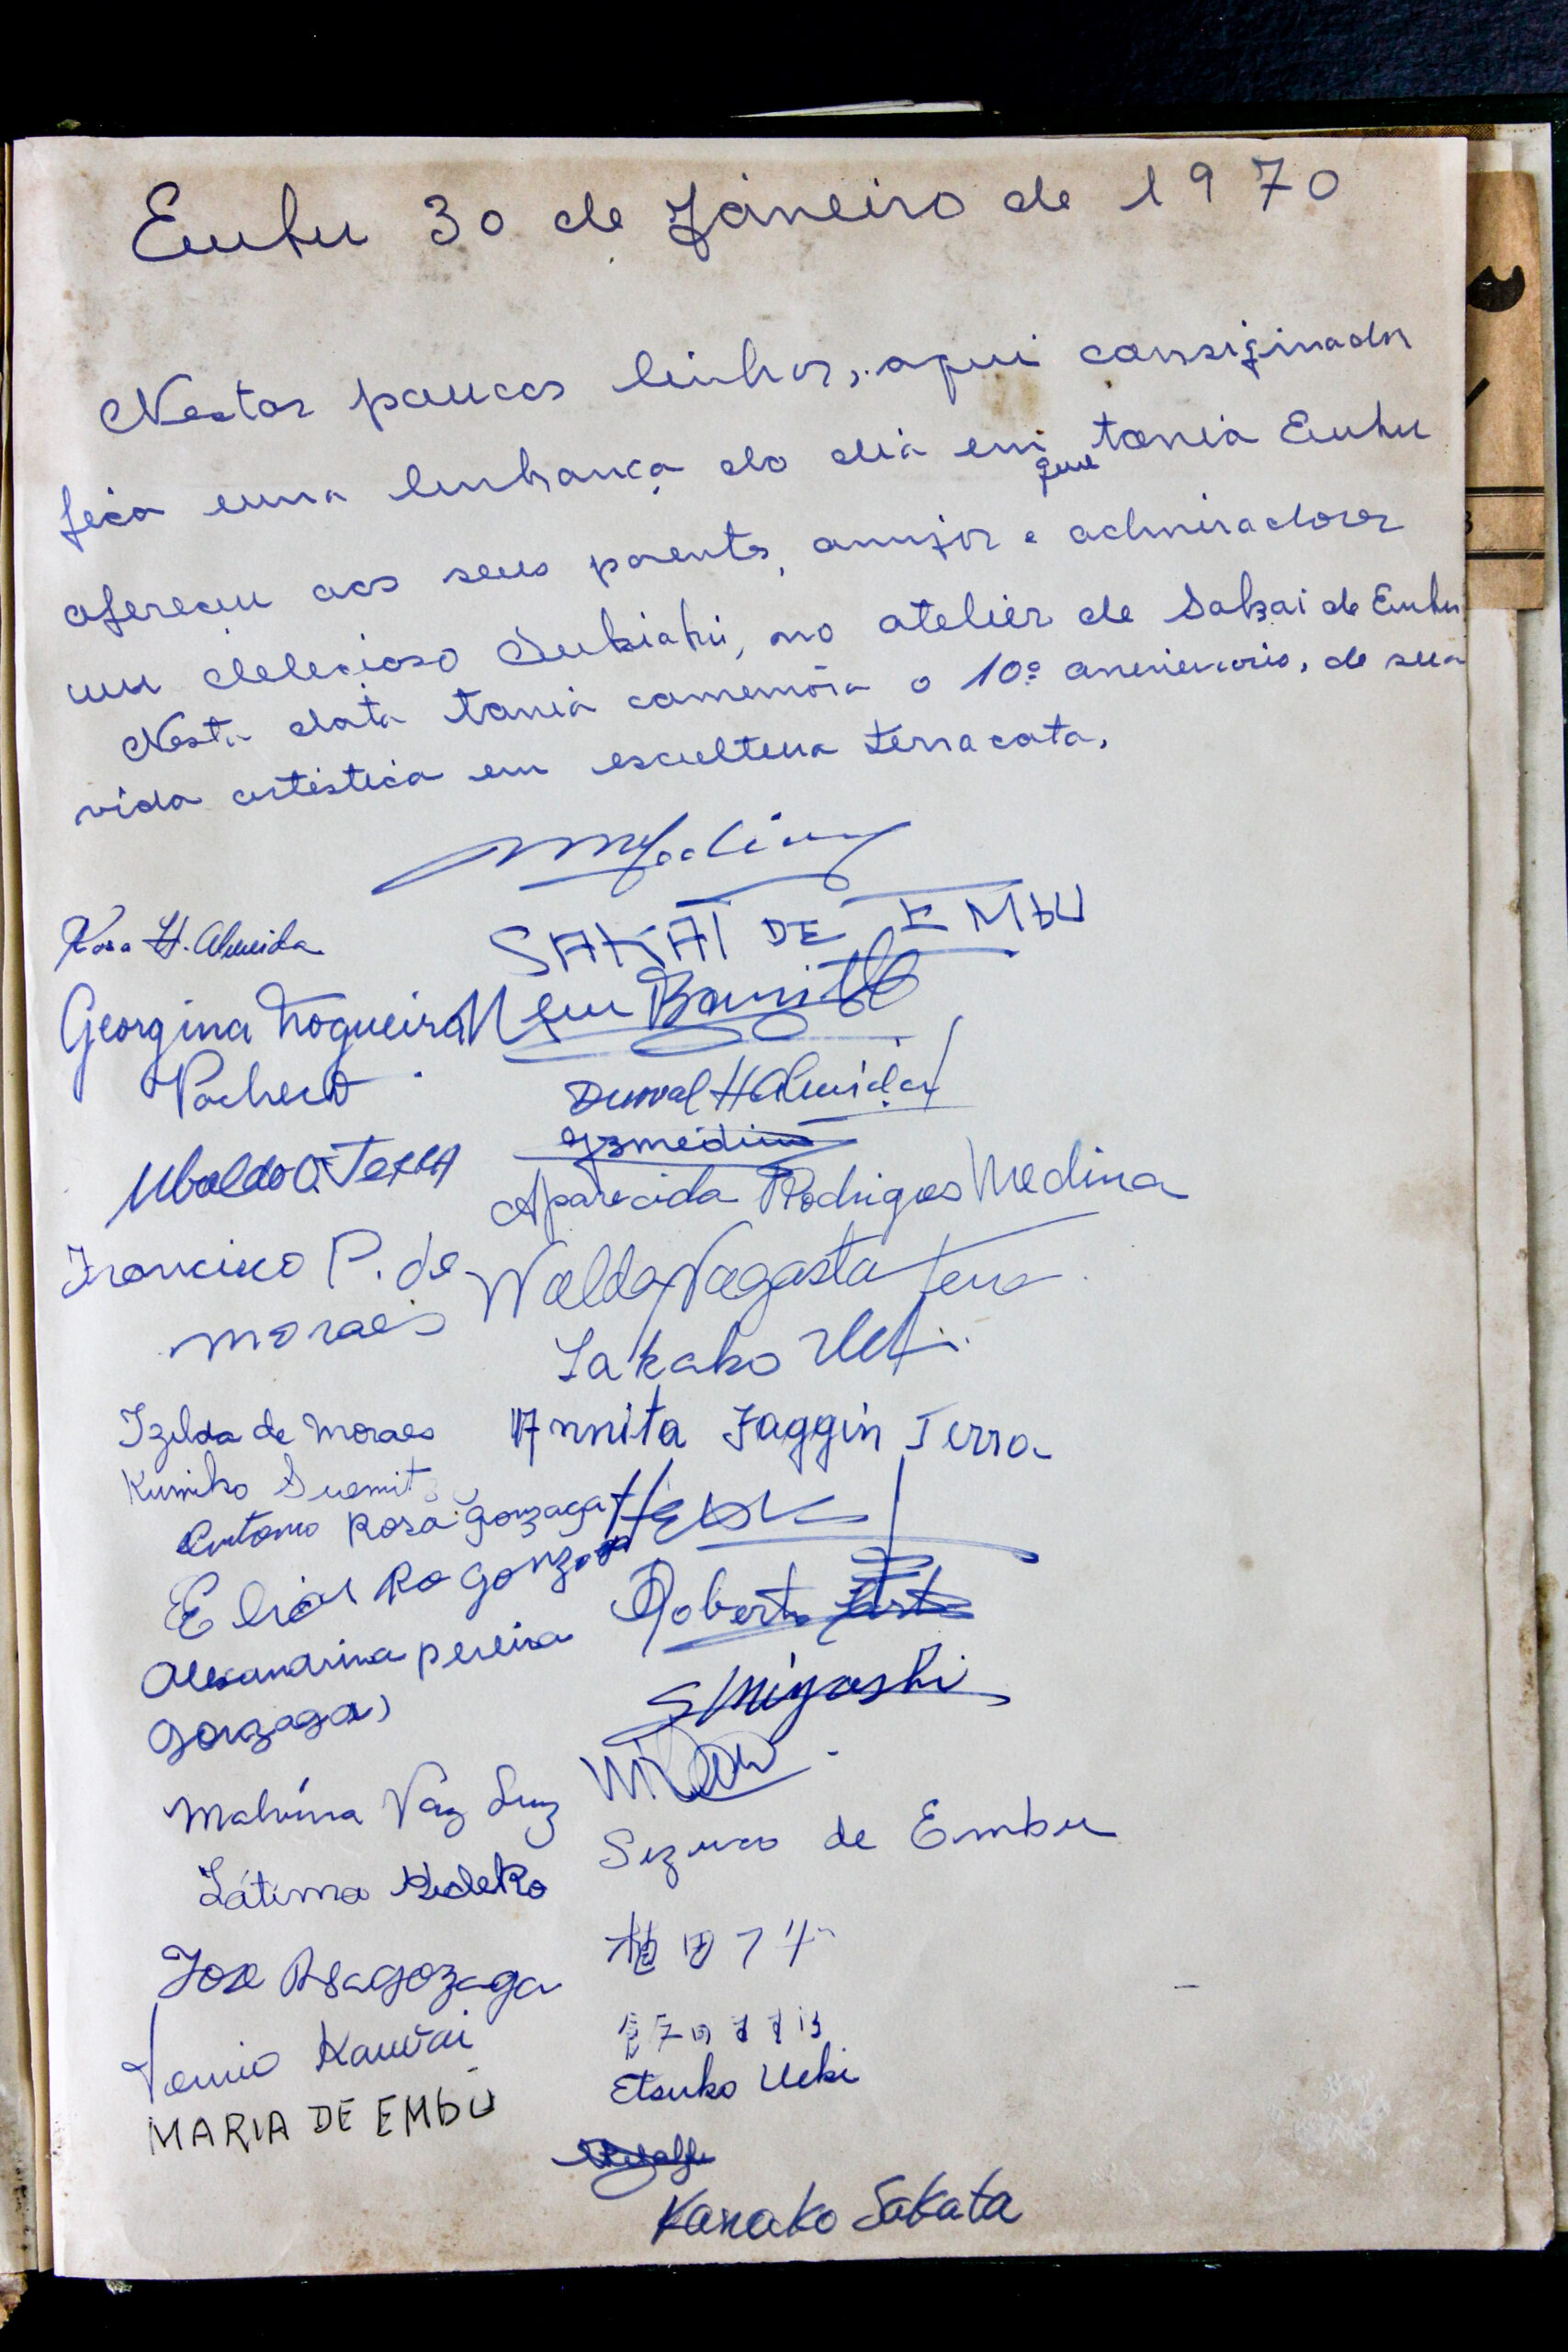 Embu 30 de Janeiro de 1970
Nestas poucas linhas, aqui consiginados
fica uma lembrança do dia em que tania Embu
ofereceu aos seus parentes, amigos e admiradores
um delecioso Sukiaki, no atelier de Sakai de Embu
Nesta data tania comemóra o 10º aneiversario, de sua
vida artistica em escultura terracota,
Rosa H. Almeida
SAKAI DE EMBU
Georgina Nogueira
Pacheco
Durval H Almeida
Ubaldo A. Terra
Aparecida Rodrigues Medina
Francisco P. de
moraes
Walda Vagasta Terra
Takako Ueki
Izelda de Moraes
Annita Faggin Terra
Kumiko Suemitsu
Antonio Rosa gonzaga
Elias Ro gonzaga
Roberto
Alexandrina pereira
gonzaga
SMiyoshi
Malvina Vaz Luz
Sizuco de Embu
Fátima Hideko
Jose Rsagozaga
Tomio Kawai
Etsuko Ueki
MARIA DE EMBU
Kanako Sakata